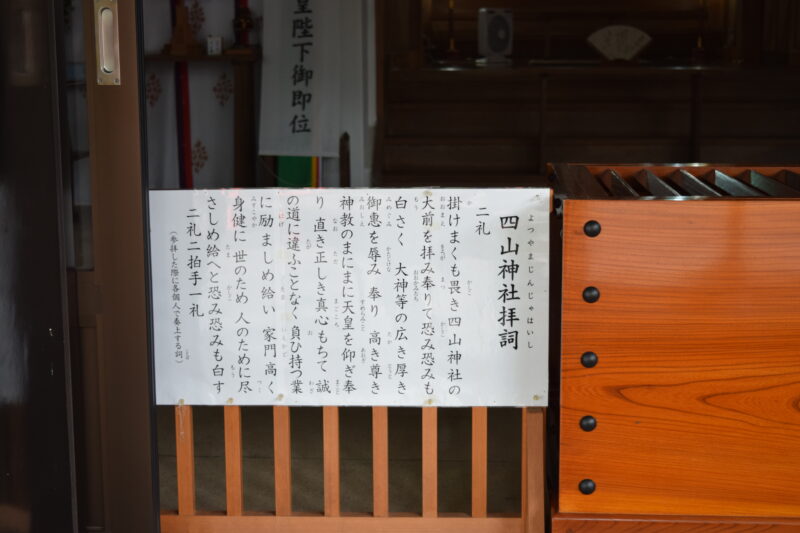 四山神社拝詞
よつやまじんじゃはいし
二礼
掛けまくも畏き四山神社の
大前を拝み奉りて恐み恐みも
白さく 大神等の広き厚き
御恵を辱み 奉り 高き尊き
神教のまにまに天皇を仰ぎ奉
り 直き正しき真心もちて 誠
の道に違ふことなく 負ひ持つ業
に励 ましめ給い 家門 高く
身健に 世のため 人のために尽
さしめ給へと恐み恐みも白す
二礼二拍手一礼
(参拝した際に各個人で奏上する詞)
皇陛下御即位